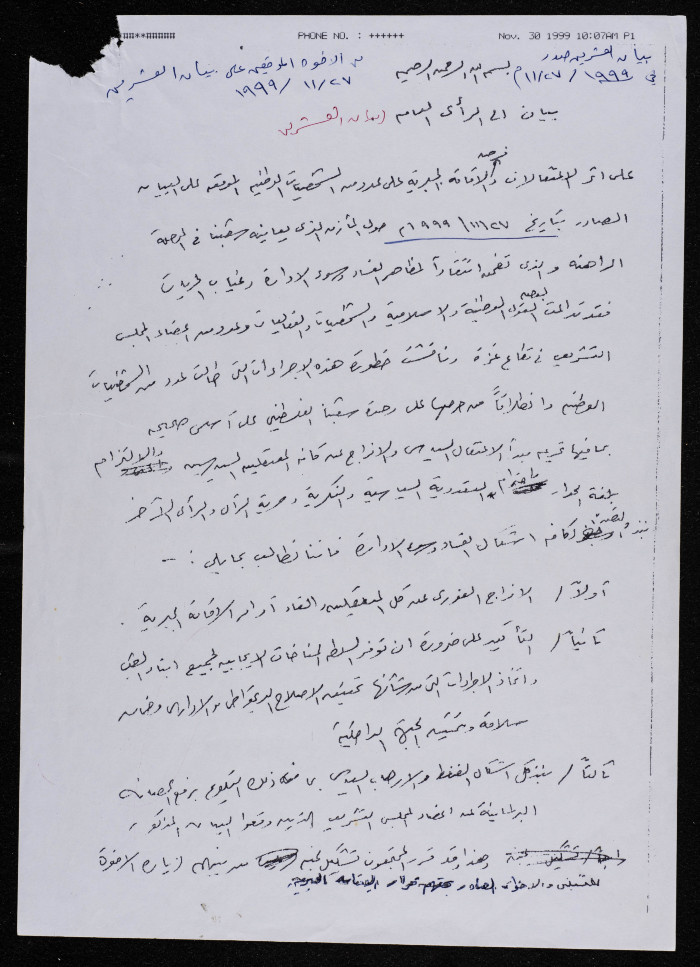 PHONE NO. : ++++++ Nov. 30 1999 10:07AM P1
بيان العشرين صدر
في ١٩٩٩/١١/٢٧م
بسم الله الرحمن الرحيم
الاخوة الموقعين على بيان العشرين
١٩٩٩/١١/٢٧
بيان الى الرأي العام (بيان العشرين
على اثر الاعتقالات وفرض الاقامة الجبرية على عدد من الشخصيات الوطنية الموقعة على البيان
الصادر بتاريخ ١٩٩٩/١١/٢٧م حول المأزق الذي يعانيه شعبنا في المرحلة
الراهنة والذي تضمن انتقاداً لمظاهر الفساد وسوء الادارة وغياب الحريات
فقد تداعت بعض القوى الوطنية والاسلامية والشخصيات والفعاليات وعدد من اعضاء المجلس
التشريعي في قطاع غزة وناقشت خطورة هذه الاجراءات التي طالت عدد من الشخصيات
الوطنية وانطلاقاً من حرصها على وحدة شعبنا الفلسطيني على أسس صحيحة
بما فيها تحريم مبدأ الاعتقال السياسي والافراج عن كافة المعتقلين السياسيين والالتزام
بلغة الحوار واحترام التعددية السياسية والفكرية وحرية الرأي والرأي الآخر
لكافة اشكال الفساد وسوء الادارة فاننا نطالب بما يلي : -
أولاً / الافراج الفوري عن كل المعتقلين والغاء أوامر الاقامة الجبرية .
ثانياً / التأكيد على ضرورة ان توفر السلطة المناخات الايجابية لجميع ابناء الشعب
واتخاذ الاجراءات التي من شأنها تحقيق الاصلاح الديمقراطي والاداري وضمان
سلامة وتمتين الجبهة الداخلية
ثالثاً / نبذ كل اشكال الضغط والارهاب السياسي بما في ذلك التلويح برفع الحصانة
البرلمانية عن اعضاء المجلس التشريعي الذين وقعوا البيان المذكور .
هذا وقد قرر المجتمعون تشكيل لجنة زيارة الاخوة
المعتقلين والاخوة الصادر بحقهم قرار الاقامة الجبرية